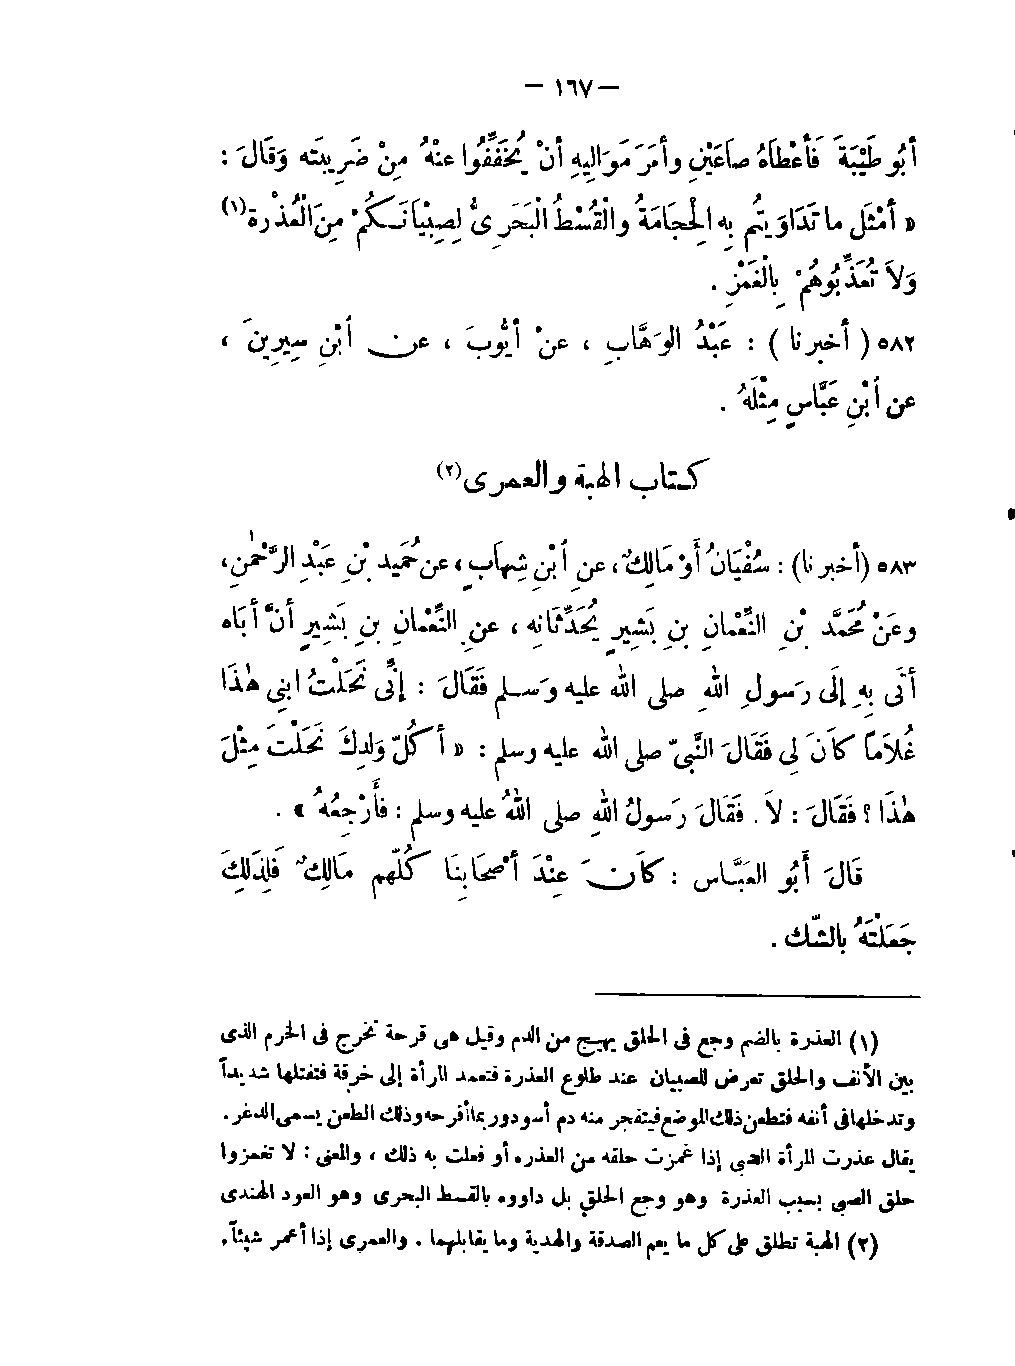 — ١٦٧ —
أبُو طَيْبَةَ فَأعْطَاهُ صَاعَيْنِ وأمَرَ مَوَالِيهِ أنْ يُخَفِّفُوا عنْهُ مِنْ ضَرِيبَتِه وَقَالَ :
« أمْثَل ما تَدَاوَيتُم بِه الْحِجَامَةُ والْقُسْطُ الْبَحَرِىُّ لِصِبْيَانَكُمْ مِنَ الْعُذْرة(١)
وَلاَ تُعَذِّبُوهُمْ بِالْغَمْزِ .
٥٨٢ ( أخبرنا ) : عَبْدُ الوَهَّابِ ، عنْ أيُّوبَ ، عن اُبْنِ سِيرِينَ ،
عن اُبْنِ عَبَّاسٍ مِثْلَهُ .
كتاب الهبة والعمرى(٢)
٥٨٣ (أخبرنا) : سُفْيَانُ أَوْ مَالِكٌ، عنِ اُبْنِ شِهابٍ، عن حُمَيد بْنِ عَبْدِ الرَّحْمٰنِ،
وعَنْ مُحَمَّد بْنِ النُّعْمَانِ بنِ بَشيرٍ يُحَدِّثَانِهِ ، عنِ النُّعْمَانِ بنِ بَشيرٍ أنَّ أبَاه
أتَى بِهِ إلَى رَسولِ اللهِ صلى الله عليه وَسلم فَقَالَ : إنِّى نَحَلْتُ ابنِى هٰذَا
غُلاَماً كَانَ لِى فَقَالَ النَّبِىّ صلى الله عليه وسلم : « أكُلّ وَلدِكَ نَحَلْتَ مِثْلَ
هٰذَا ؟ فقَالَ : لاَ . فَقَالَ رَسولُ اللهِ صلى اللهُ عليه وسلم : فأَرْجِعُهُ » .
قَالَ أَبُو العَبَّاس : كَانَ عِنْدَ أصْحَابِنَا كُلّهم مَالِكٌ فَلِذَلِكَ
جَعَلْتَهُ بالشّك .
(١) العذرة بالضم وجع فى الحلق يهيج من الدم وقيل هى قرحة تخرج فى الخرم الذى
بين الأنف والحلق تعرض للصبيان عند طلوع العذرة فتعمد المرأة إلى خرقة فتفتلها شديداً
وتدخلها فى أنفه فتطعن ذلك الموضع فيتفجر منه دم أسود وربما أفرحه وذلك الطعن يسمى الدغر .
يقال عذرت المرأة الصبى إذا غمزت حلقه من العذره أو فعلت به ذلك ، والمعنى : لا تغمزوا
حلق الصبى بسبب العذرة وهو وجع الحلق بل داووه بالقسط البحرى وهو العود الهندى
(٢) الهبة تطلق على كل ما يعم الصدقة والهدية وما يقابلهما . والعمرى إذا أعمر شيئاً،